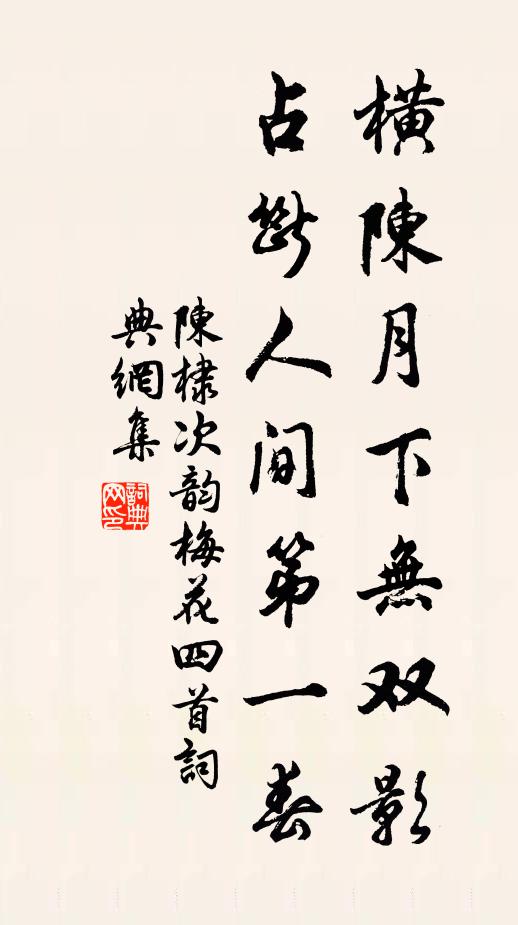 橫陳月下無双影
占斷人間第一春
陳棣次韵梅花四首詞
典網集
詞典网印